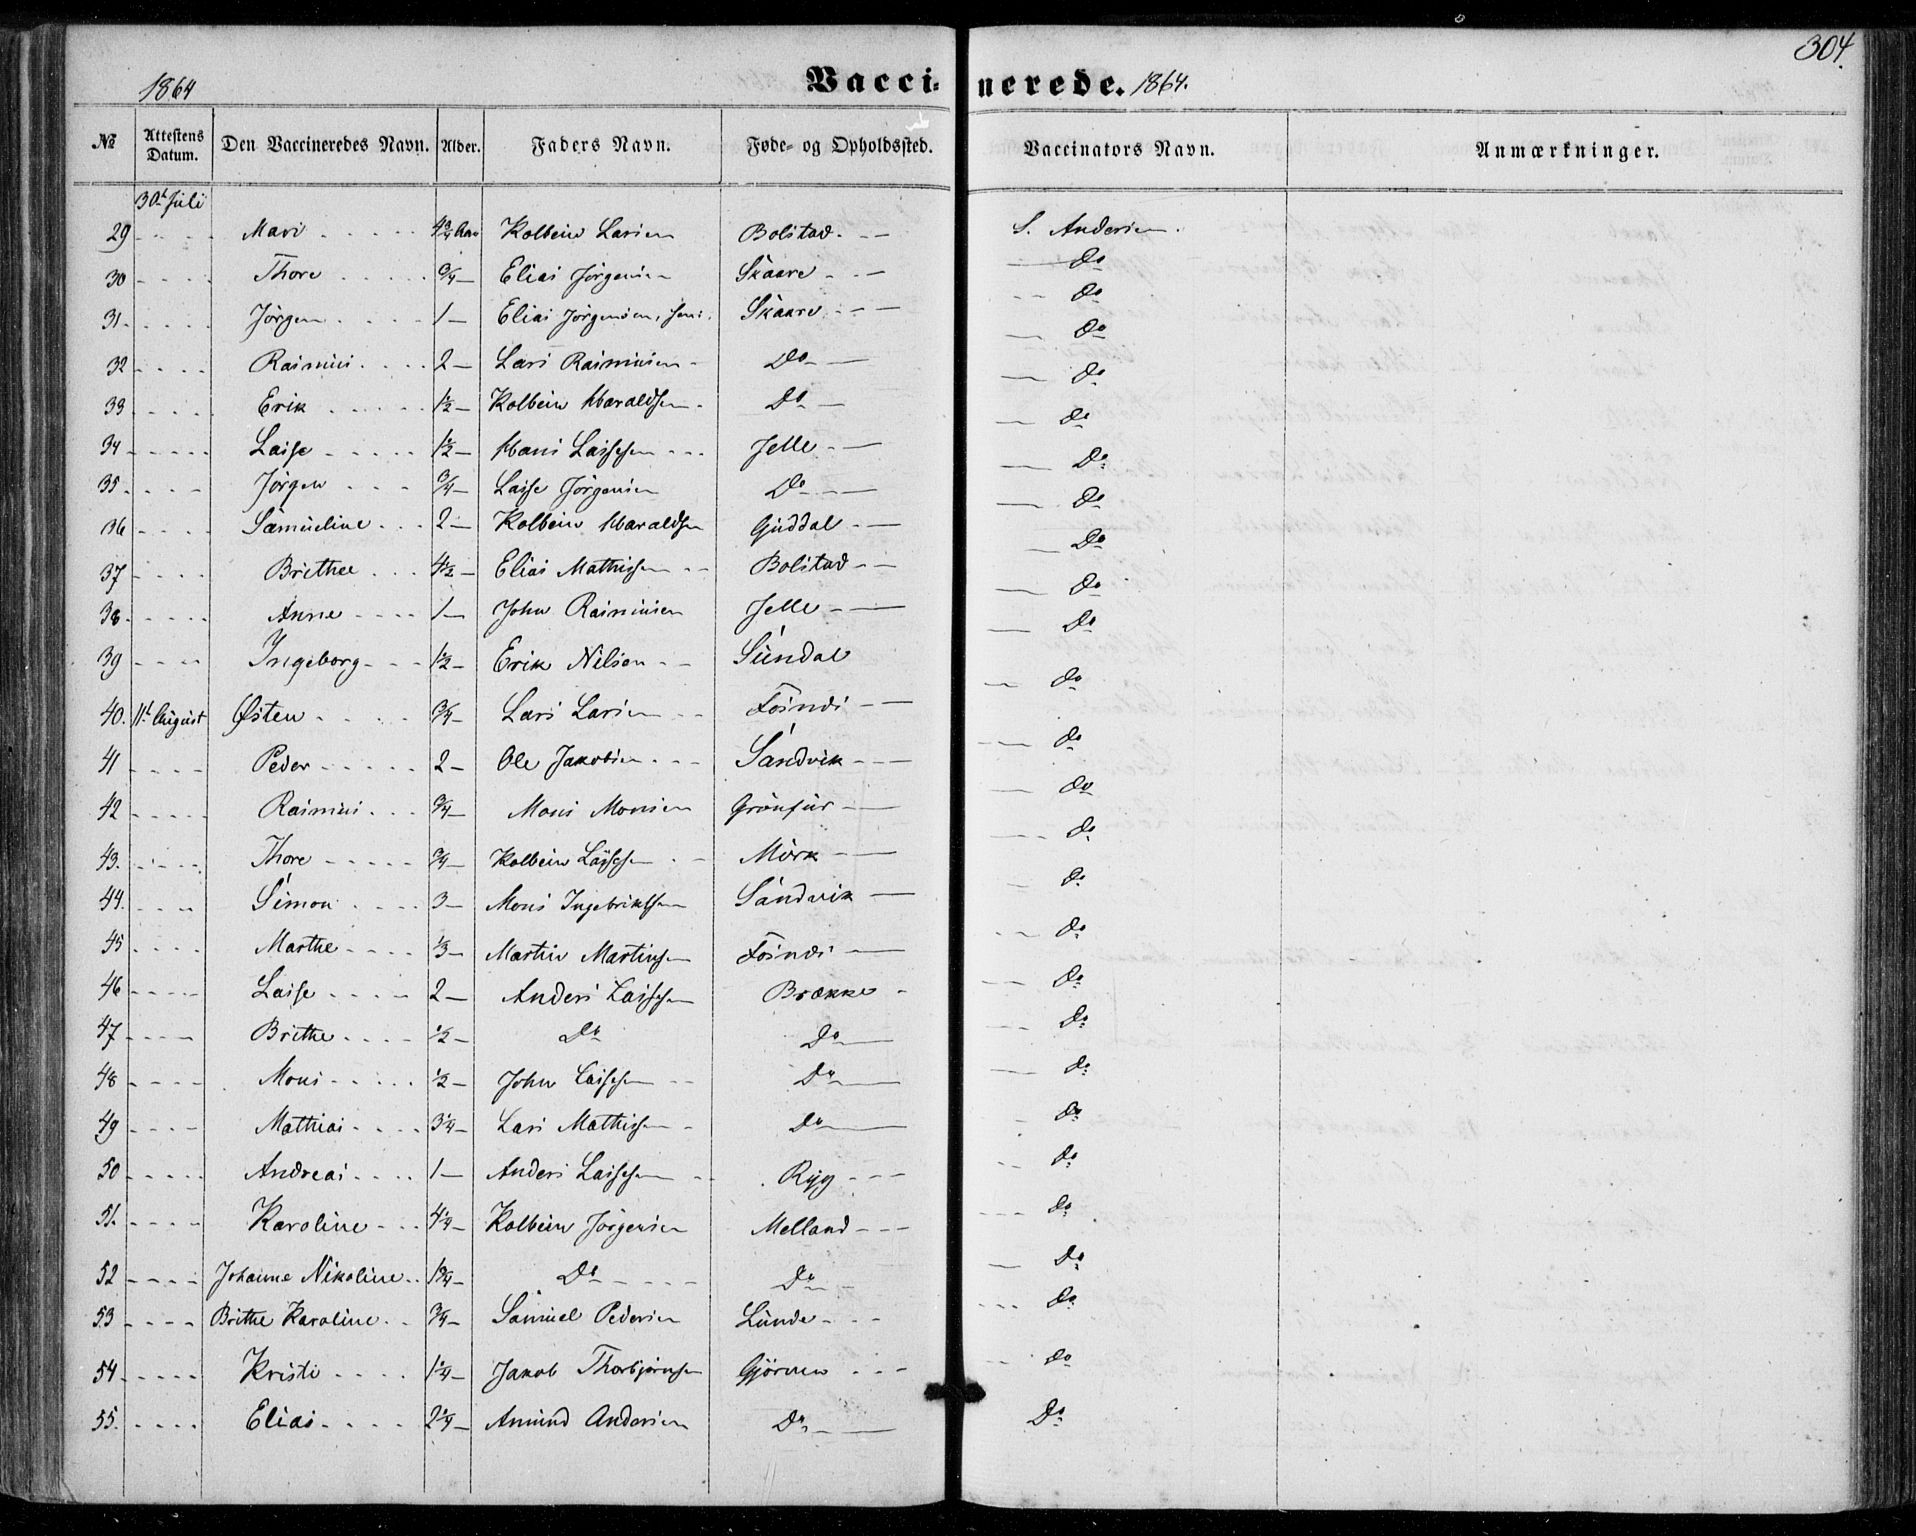 304.
1864 Vaccinerede. 1864.
№ Attestens Datum. Den Vaccineredes Navn. Alder. Faders Navn. Føde- og Opholdssted. Vaccinators Navn. Anmærkninger.
30t Juli
29 - - - Mari - - - 4 3/4 Aar Kolbein Larsen Bolstad - - S. Andersen.
30 - - - Thore - - - 3/4 — Elias Jörgensen Skaare - - — do
31 - - - Jörgen - - - 1 — Elias Jörgensen, sen. Skaare - - - - do
32 - - - Rasmus - - - 2 — Lars Rasmusen - Do — — do
33 - - - Erik - - - 1 1/2 — Kolbein Haraldsen - Do — — do
34 - - - Lasse - - - 1 1/2 — Hans Lassesen - - - Jelle - — — do
35 - - - Jörgen - - - 3/4 — Lasse Jörgensen Do - — — Do
36 - - - Samueline - - - 2 — Kolbein Haraldsen Guddal - — — do
37 - - - Brithe - - - 4 1/2 — Elias Mathissen - - Bolstad - - — Do
38 - - - Anne - - - 1 — John Rasmusen Jelle - — — do
39 - - - Ingeborg - - - 1 1/2 — Erik Nilsen - - Sundal — Do
40. 11t August Østen - - - 3/4 — Lars Larsen - - Fosnæs - — — do
41 - - - Peder - - - 2 — Ole Jakobsen - - - Sandvik - - - — do
42 - - - Rasmus - - - 3/4 — Mons Monsen Grönfur - — — do
43. - - - Thore - - - 3/4 — Kolbein Lassesen - - Mörk - — - — do
44. - - - Simon - - - 3 — Mons Ingebriktsen Sandvik — — do
45 - - - Marthe - - - 1/3 — Martin Martinsen Fosnæs - — - - do
46 - - - Lasse - - - 2 — Anders Lassesen Brække - — do
47 - - - Brithe - - - 1/2 — Do Do — - - do
48 - - - Mons - - - 1/2 — John Lassesen - - Do — — do
49 - - - Mathias - - - 3 1/4 — Lars Mathissen - Do — - do
50 - - - Andreas - - - 1 — Anders Lassesen - - Ryg - - - - - do
51. - - - Karoline - - - 4 1/4 — Kolbein Jörgensen Melland - - - - - do
52 - - - Johanne Nikoline - - 1 3/4 — Do - - - Do — — Do
53 - - - Brithe Karoline - - 3/4 — Samuel Pedersen Lunde - - - - - - do
54 - - - Kristi - - - 1 1/4 — Jakob Thorbjörnsen Gjörven - - - - - do
55. - - - Elias - - - 2 1/4 — Amund Andersen Do - — Do